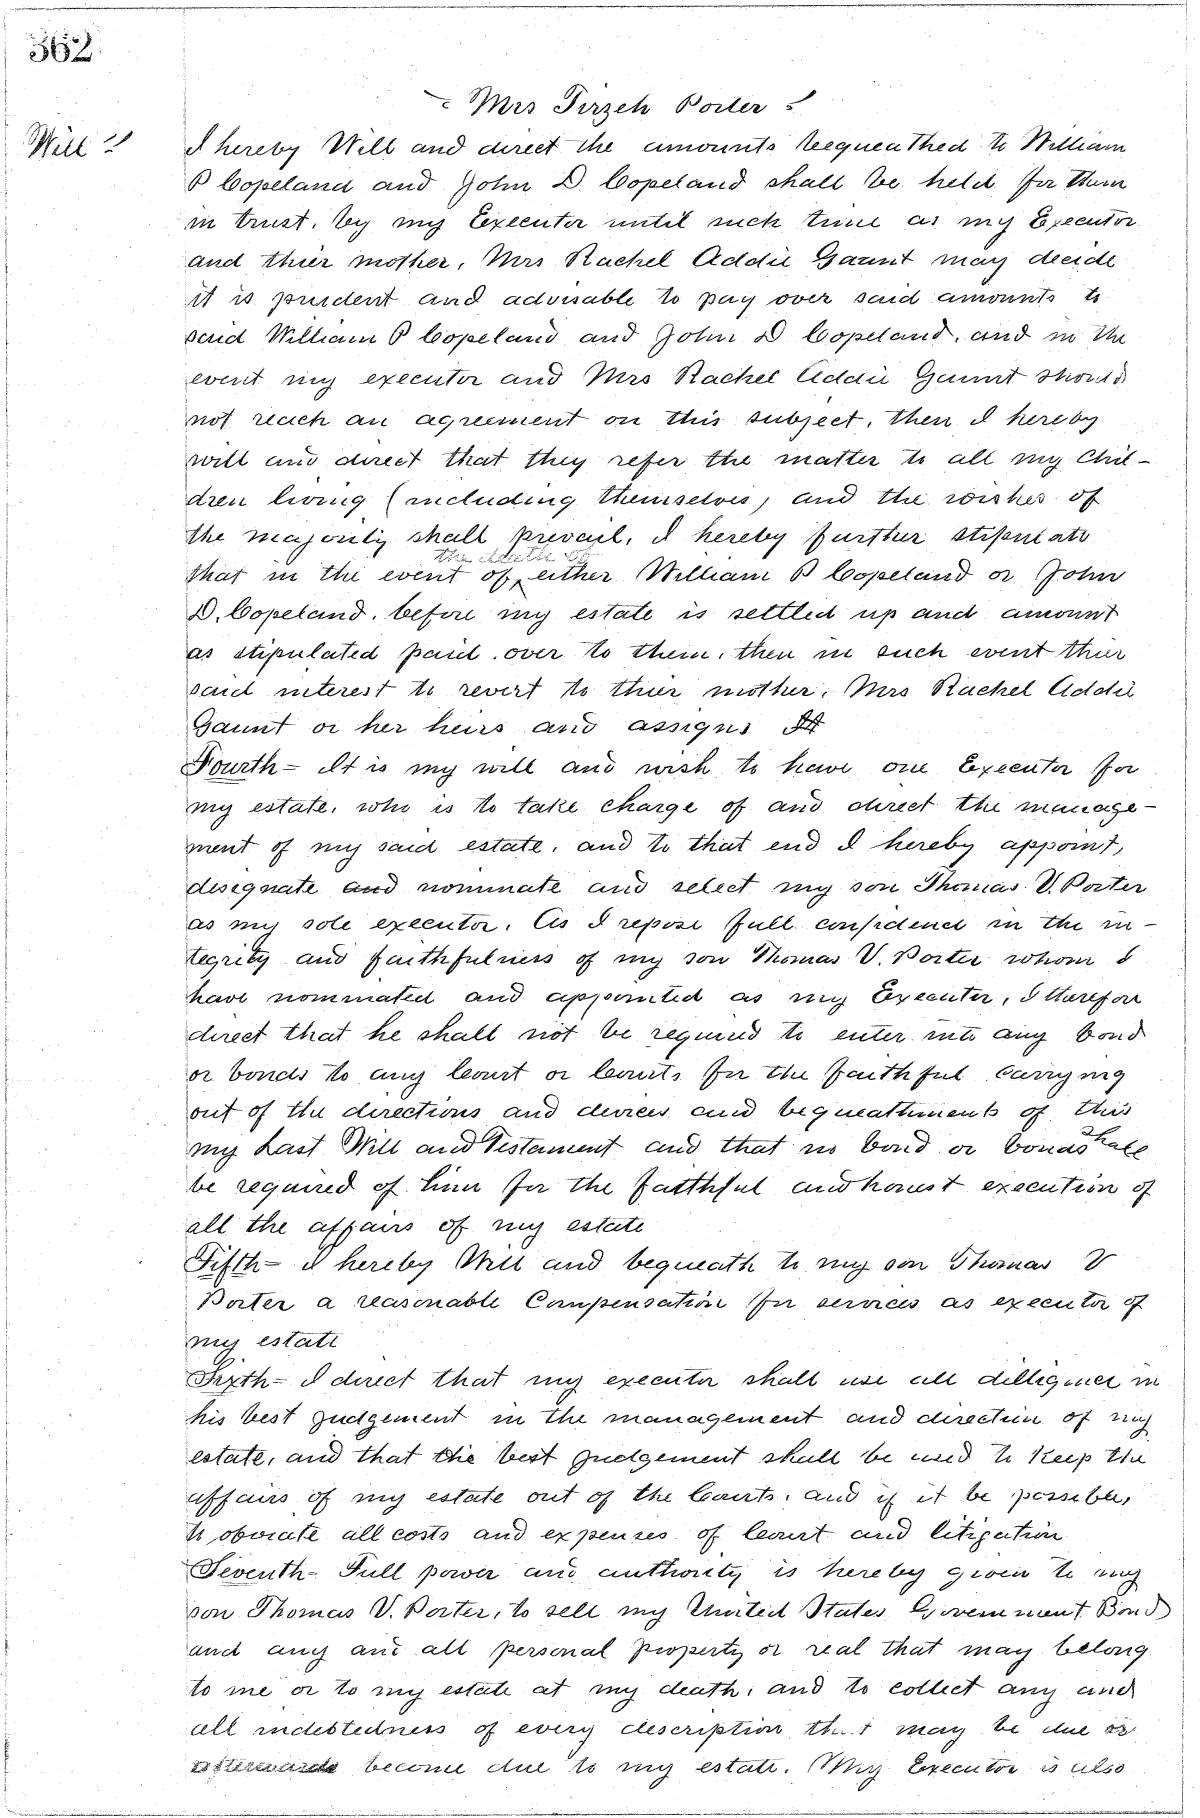 362
Mrs Tirzeh Porter
Will
I hereby Will and direct the amounts bequeathed to William
P Copeland and John D Copeland shall be held for them
in trust, by my Executor until such time as my Executor
and thier mother, Mrs Rachel Addie Gaunt may decide
it is prudent and advisable to pay over said amounts to
said William P Copeland and John D Copeland, and in the
event my executor and Mrs Rachel Addie Gaunt should
not reach an agreement on this subject, then I hereby
will and direct that they refer the matter to all my Chil-
dren living (including themselves, and the wishes of
the majority shall prevail, I hereby further stipulate
the death of
that in the event of either William P Copeland or John
D. Copeland, before my estate is settled up and amount
as stipulated paid over to them, then in such event thier
said interest to revert to thier mother, Mrs Rachel Addie
Gaunt or her heirs and assigns
Fourth- It is my will and wish to have one Executor for
my estate, who is to take charge of and direct the manage-
ment of my said estate, and to that end I hereby appoint,
designate and nominate and select my son Thomas V. Porter
as my sole executor. As I repose full confidence in the in-
tegrity and faithfulness of my son Thomas V. Porter whom I
have nominated and appointed as my Executor, I therefore
direct that he shall not be required to enter into any bond
or bonds to any Court or Courts for the faithful carrying
out of the directions and devices and bequeathments of this
my Last Will and Testament and that no bond or bonds shall
be required of him for the faithful and honest execution of
all the affairs of my estate
Fifth- I hereby Will and bequeath to my son Thomas V
Porter a reasonable Compensation for services as executor of
my estate
Sixth- I direct that my executor shall use all dilligence in
his best judgement in the management and direction of my
estate, and that the best judgement shall be used to Keep the
affairs of my estate out of the Courts, and if it be possible,
to obviate all costs and expenses of Court and litigation
Seventh- Full power and authority is hereby given to my
son Thomas V. Porter, to sell my United States Government Bond
and any and all personal property or real that may belong
to me or to my estate at my death, and to collect any and
all indebtedness of every description that may be due or
afterwards become due to my estate. My Executor is also